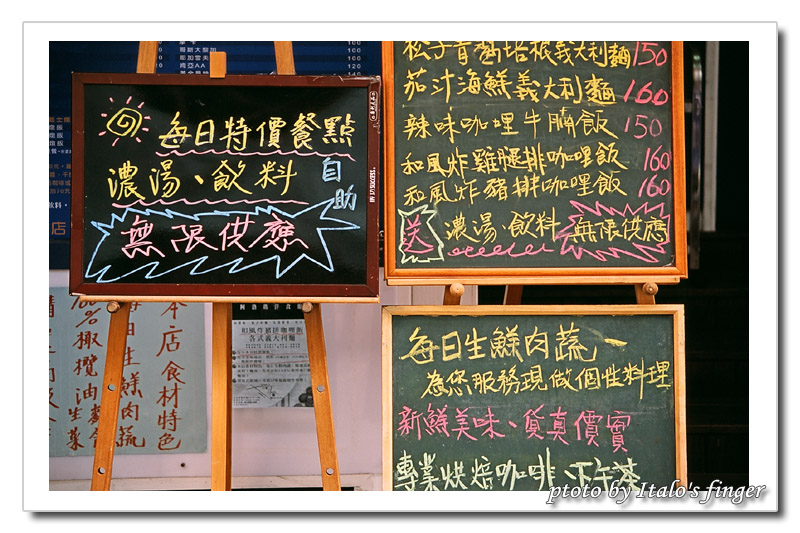 每日特價餐點
濃湯、飲料
自助
無限供應
松子青醬培根義大利麵150
茄汁海鮮義大利麵160
辣味咖哩牛腩飯150
和風炸雞腿排咖哩飯160
和風炸豬排咖哩飯160
送 濃湯·飲料 無限供應
每日生鮮肉蔬
為您服務現做個性料理
新鮮美味、貨真價實
專業烘焙咖啡、下午茶
本店食材特色
每日生鮮肉蔬
100%橄欖油
和風炸豬排咖哩飯
各式義大利麵
店
ptoto by Italo's finger